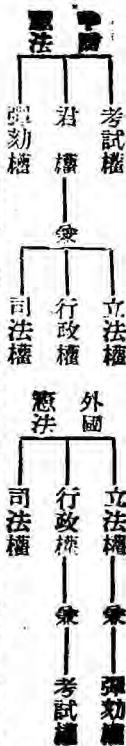 中國
憲法
考試權
君權
彈劾權
兼
立法權
行政權
司法權
外國
憲法
立法權
兼
彈劾權
行政權
兼
考試權
司法權